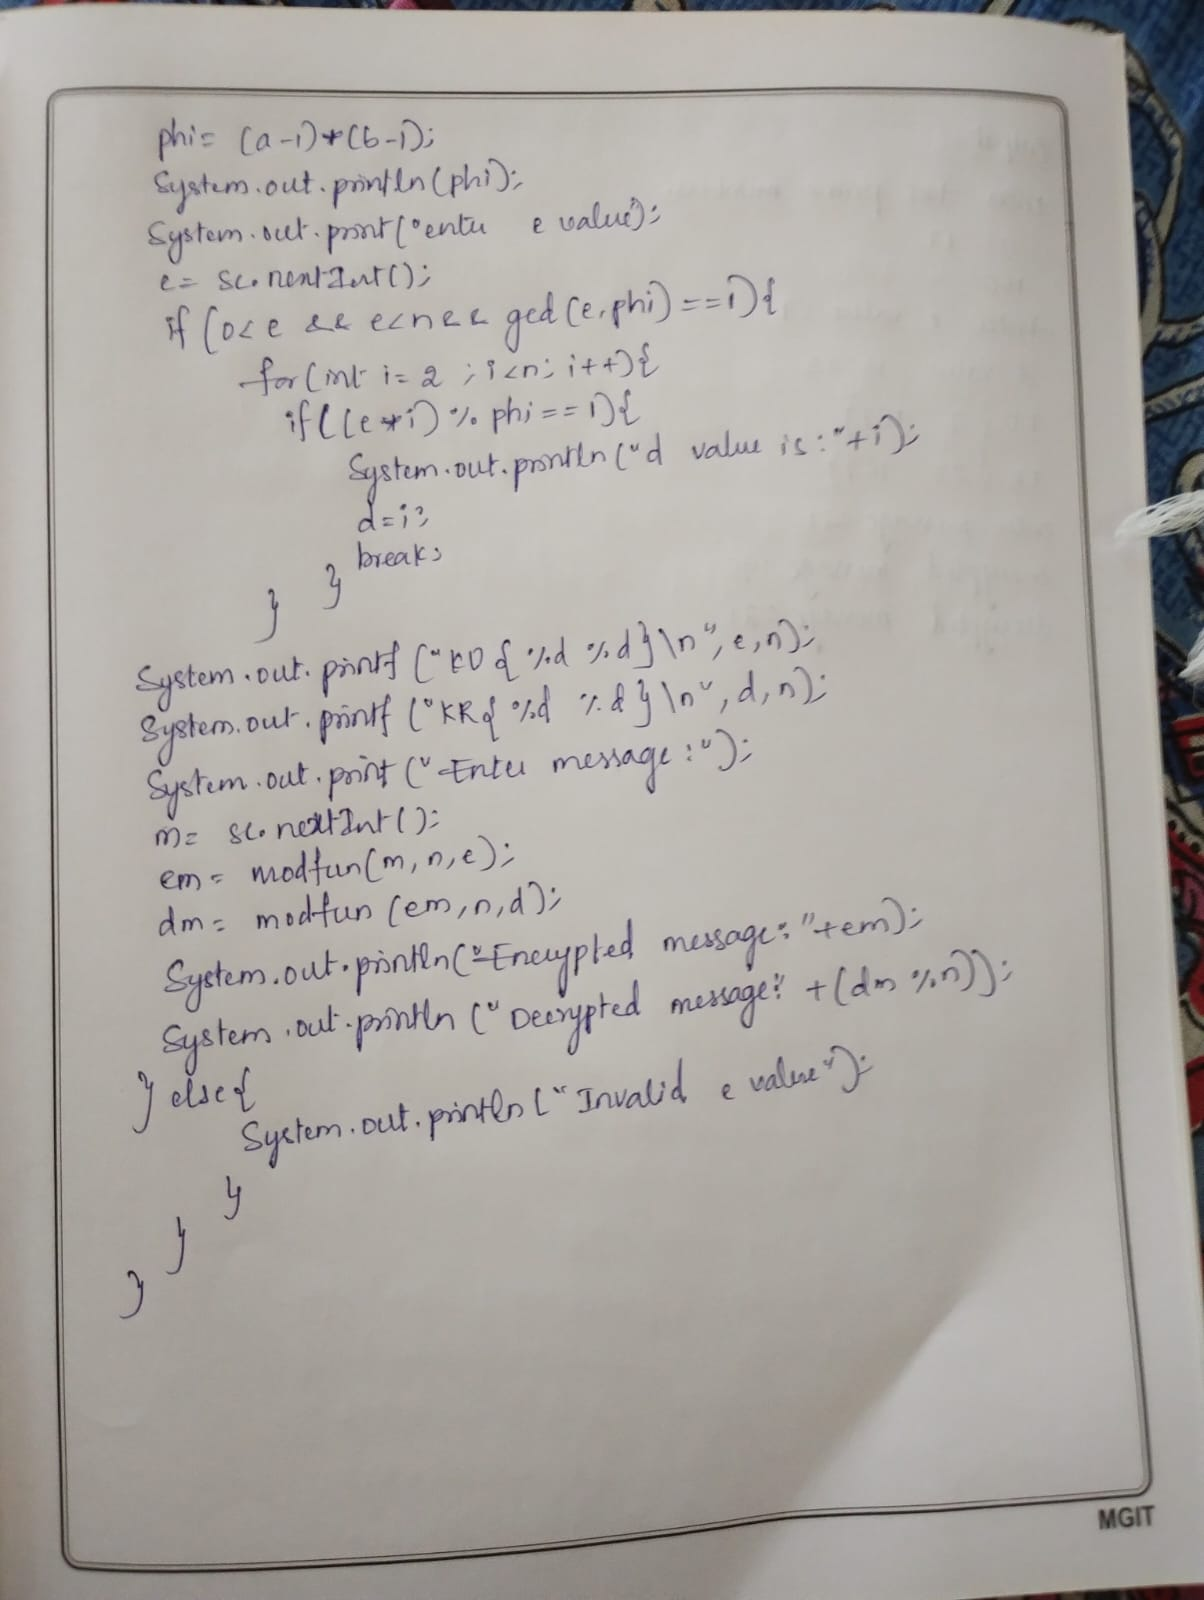 phi= (a-1)*(b-1);
System.out.println(phi);
System.out.print("enter e value");
e= sc.nextInt();
if (0<e && e<n && gcd(e,phi)==1){
for(int i=2 ; i<n; i++){
if((e*i) % phi==1){
System.out.println("d value is:"+i);
d=i;
break;
}
}
System.out.printf("KU{%d %d}\n", e,n);
System.out.printf("KR{%d %d}\n", d,n);
System.out.print("Enter message:");
m= sc.nextInt();
em= modfun(m,n,e);
dm= modfun(em,n,d);
System.out.println("Encrypted message:"+em);
System.out.println("Decrypted message:" +(dm %n));
} else{
System.out.println("Invalid e value");
}
}
}
MGIT